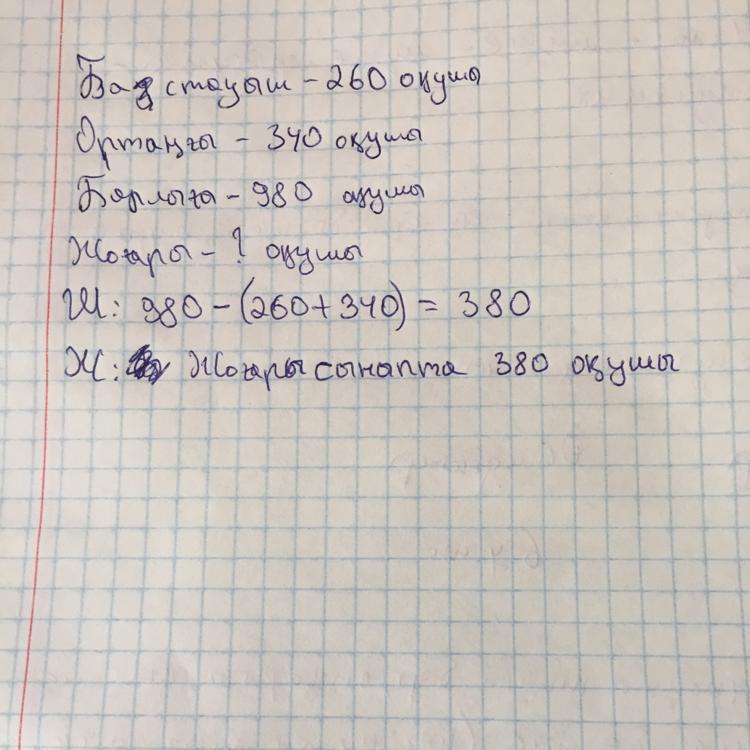 Бастауыш – 260 оқушы
Ортаңғы – 340 оқушы
Барлығы – 980 оқушы
Жоғары – ? оқушы
Ш: 980 – (260 + 340) = 380
Ж: Жоғары сыныпта 380 оқушы